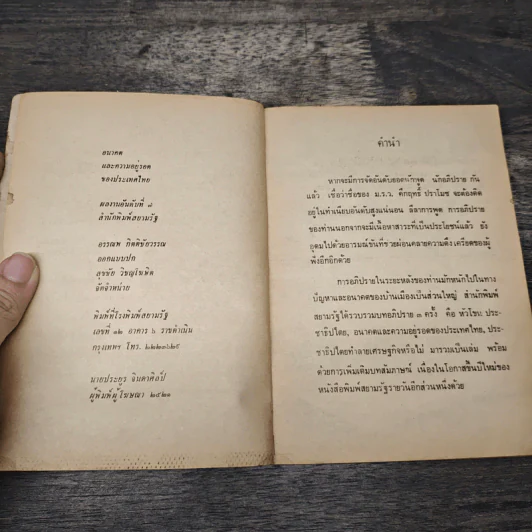 อนาคต
และความอยู่รอด
ของประเทศไทย
ผลงานอันดับที่ ๘
สำนักพิมพ์สยามรัฐ
อรรณพ กิตติชัยวรรณ
ออกแบบปก
สุขชัย วิชญโฆษิต
จัดจำหน่าย
พิมพ์ที่โรงพิมพ์สยามรัฐ
เลขที่ ๑๒ อาคาร ๖ ราชดำเนิน
กรุงเทพฯ โทร.
นายประยูร จินดาศิลป์
ผู้พิมพ์ผู้โฆษณา ๒๕๒๑
คำนำ
หากจะมีการจัดอันดับยอดนักพูด นักอภิปราย กัน
แล้ว เชื่อว่าชื่อของ ม.ร.ว. คึกฤทธิ์ ปราโมช จะต้องติด
อยู่ในทำเนียบอันดับสูงแน่นอน ลีลาการพูด การอภิปราย
ของท่านนอกจากจะมีเนื้อหาสาระที่เป็นประโยชน์แล้ว ยัง
อุดมไปด้วยอารมณ์ขันที่ช่วยผ่อนคลายความตึงเครียดของผู้
ฟังอีกด้วย
การอภิปรายในระยะหลังของท่านมักหนักไปในทาง
ปัญหาและอนาคตของบ้านเมืองเป็นส่วนใหญ่ สำนักพิมพ์
สยามรัฐได้รวบรวมบทอภิปราย ๓ ครั้ง คือ หัวโขน ประ-
ชาธิปไตย, อนาคตและความอยู่รอดของประเทศไทย, ประ-
ชาธิปไตยทำลายเศรษฐกิจหรือไม่ มารวมเป็นเล่ม พร้อม
ด้วยการเพิ่มเติมบทสัมภาษณ์ เนื่องในโอกาสขึ้นปีใหม่ของ
หนังสือพิมพ์สยามรัฐรายวันอีกส่วนหนึ่งด้วย